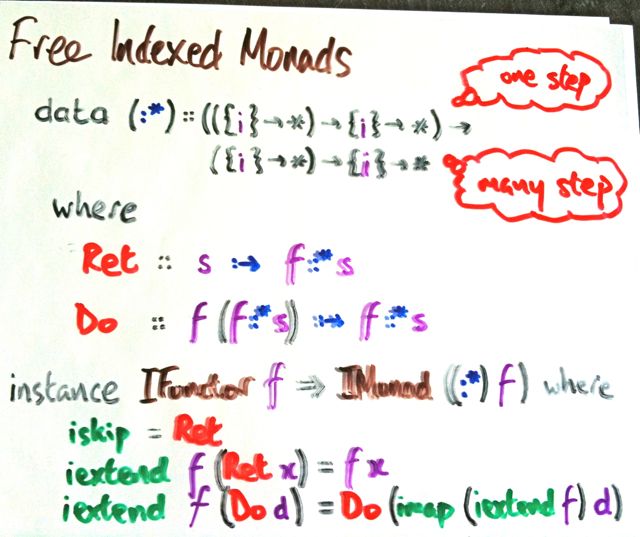 Free Indexed Monads
one step
data (:*) :: (({i}→*)→{i}→*)→
({i}→*)→{i}→*
many step
where
Ret :: s :→ f:*s
Do :: f (f:*s) :→ f:*s
instance IFunctor f ⇒ IMonad ((:*) f) where
iskip = Ret
iextend f (Ret x) = f x
iextend f (Do d) = Do (imap (iextend f) d)